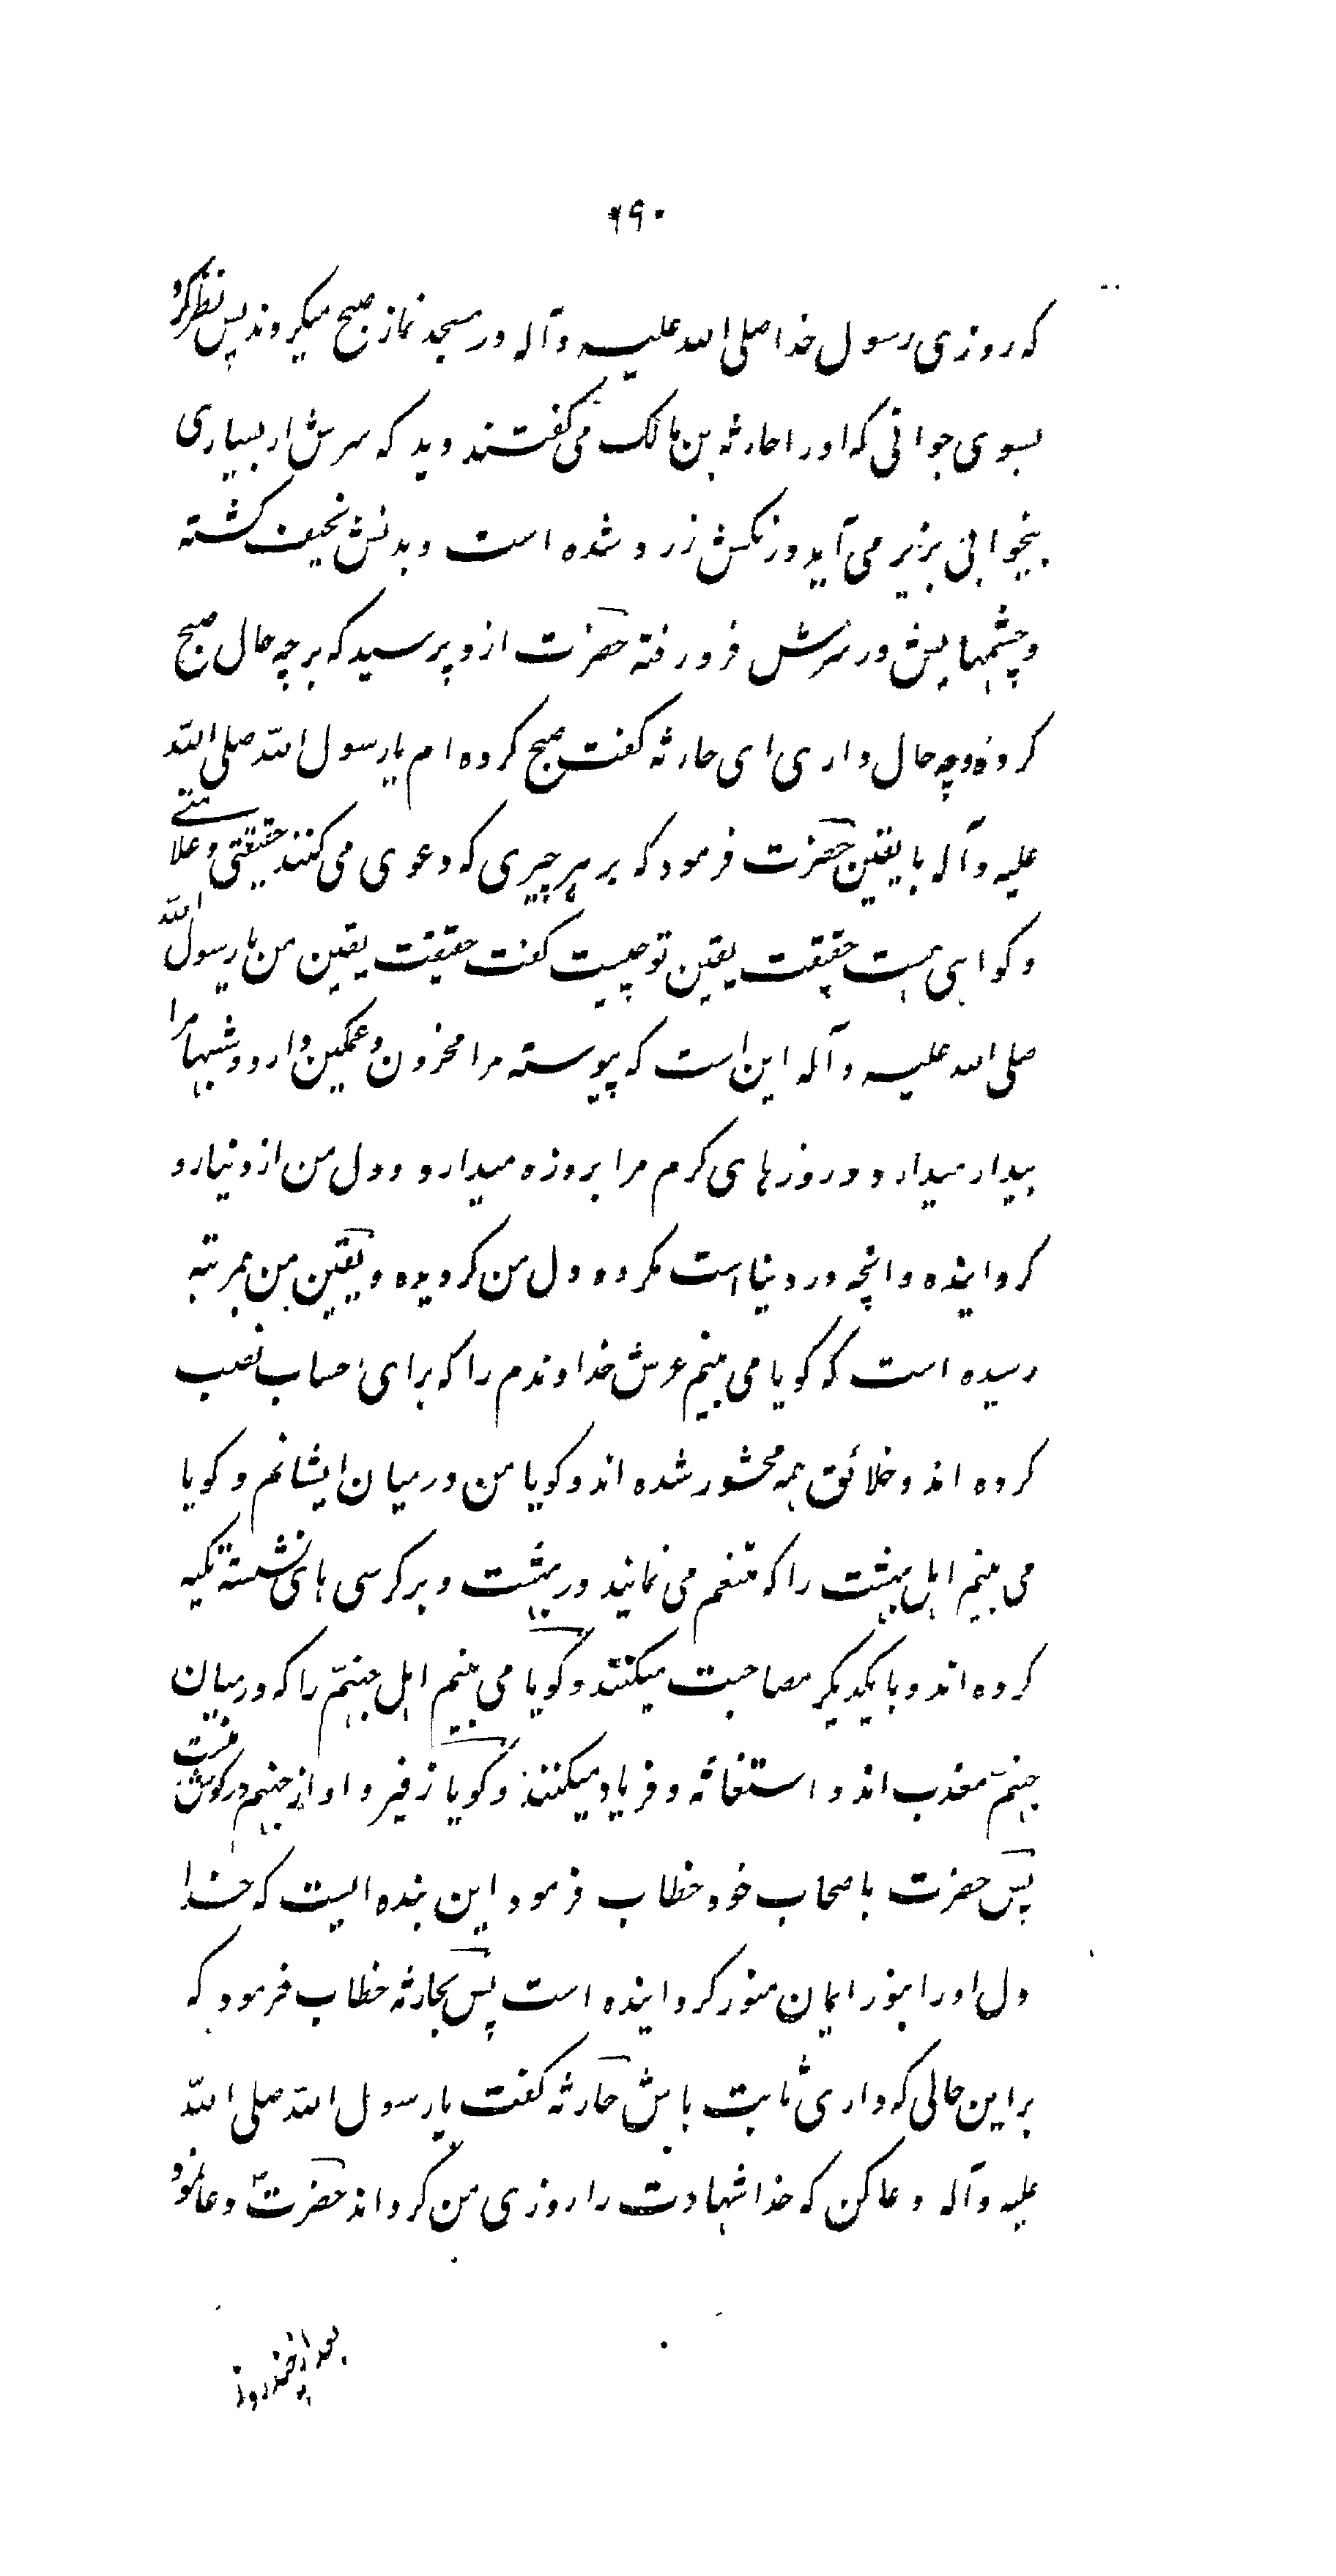 ۶۹۰
که روزی رسول خدا صلی الله علیه وآله در مسجد نماز صبح میکردند پس نظر کرد
بسوی جوانی که او را حارثه بن مالک می کفتند دید که سرش از بسیاری
بیخوابی بزیر می آید ورنکش زرد شده است وبدنش نحیف کشته
وچشمهایش در سرش فرو رفته حضرت ازو پرسید که بر چه حال صبح
کردهٔ وچه حال داری ای حارثه کفت صبح کرده ام یا رسول الله صلی الله
علیه وآله با یقین حضرت فرمود که بر هر چیزی که دعوی می کنند حقیقتی وعلامتے
وکواهی هست حقیقت یقین تو چیست کفت حقیقت یقین من یا رسول الله
صلی الله علیه وآله این است که پیوسته مرا محزون وغمکین دارد وشبها مرا
بیدار میدارد ودر روزهای کرم مرا بروزه میدارد ودل من از دنیا رو
کردانیده وانچه در دنیا است مکروه دل من کردیده ویقین من بمرتبه
رسیده است که کویا می بینم عرش خداوندم را که برای حساب نصب
کرده اند وخلائق همه محشور شده اند وکویا من در میان ایشانم وکویا
می بینم اهل بهشت را که متنعم می نمایند در بهشت وبر کرسی های نشسته تکیه
کرده اند وبا یکدیکر مصاحبت میکنند وکویا می بینم اهل جهنّم را که در میان
جهنم معذب اند واستغاثه وفریاد میکنند وکویا زفیر واواز جهنم در کوش منست
پس حضرت باصحاب خود خطاب فرمود این بنده ایست که خدا
دل او را بنور ایمان منور کردانیده است پس بحارثه خطاب فرمود که
بر این حالی که داری ثابت باش حارثه کفت یا رسول الله صلی الله
علیه وآله دعا کن که خدا شهادت را روزی من کرداند حضرت دعا نمود
بعد از چند روز